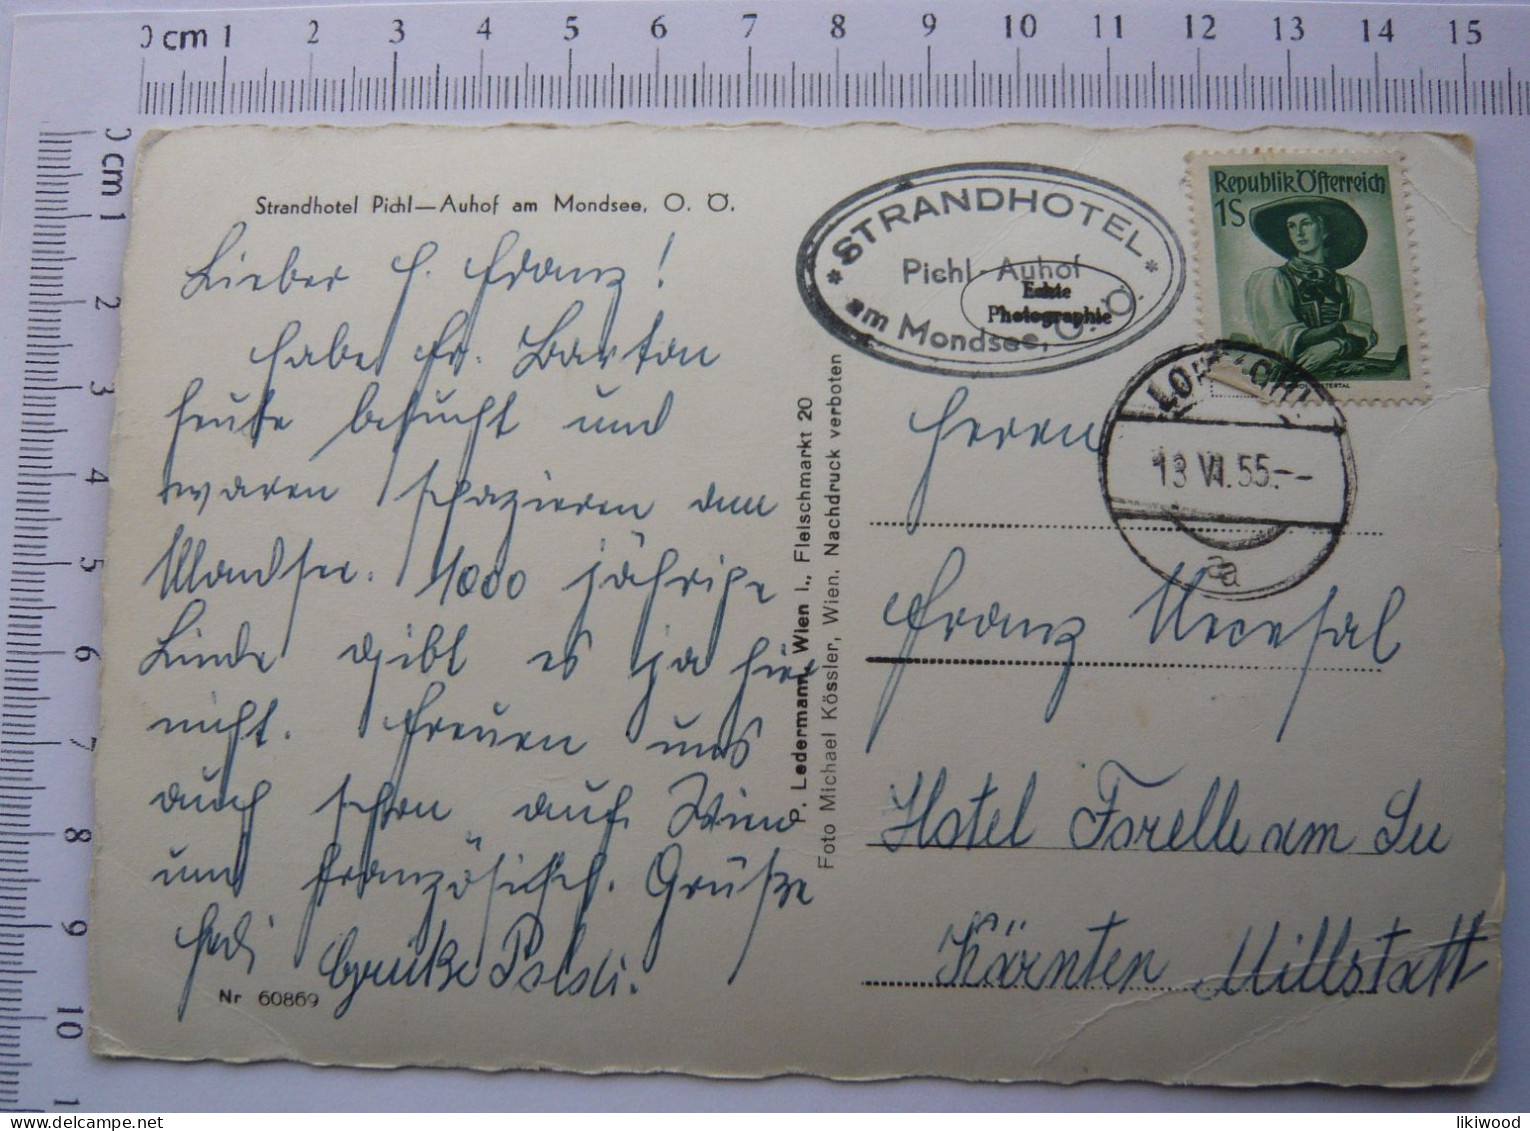 0 cm 1 2 3 4 5 6 7 8 9 10 11 12 13 14 15
0 cm 1 2 3 4 5 6 7 8 9 10 1
Strandhotel Pichl—Auhof am Mondsee, O. Ö.
Lieber H. Franz!
habe Fr. Barton
heute besucht und
waren spazieren am
Mondsee. 1000 jährige
Linde gibt es ja hier
nicht. Freuen uns
auch schon auf Wien
und französisch. Grüße
Hedi Grüße Poldi.
Nr 60869
P. Ledermann, Wien I., Fleischmarkt 20
Foto Michael Kössler, Wien. Nachdruck verboten
* STRANDHOTEL *
Pichl-Auhof
am Mondsee, O. Ö.
Echte
Photographie
Republik Österreich
1S
13 VI. 55.--
a
Herrn
Franz
Hotel Forelle am See
Kärnten Millstatt
likiwood